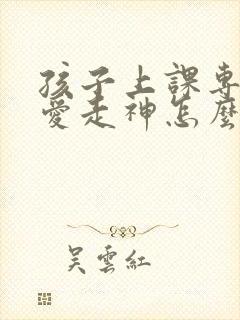 孩子上課專
愛走神怎麼
吳雲紅